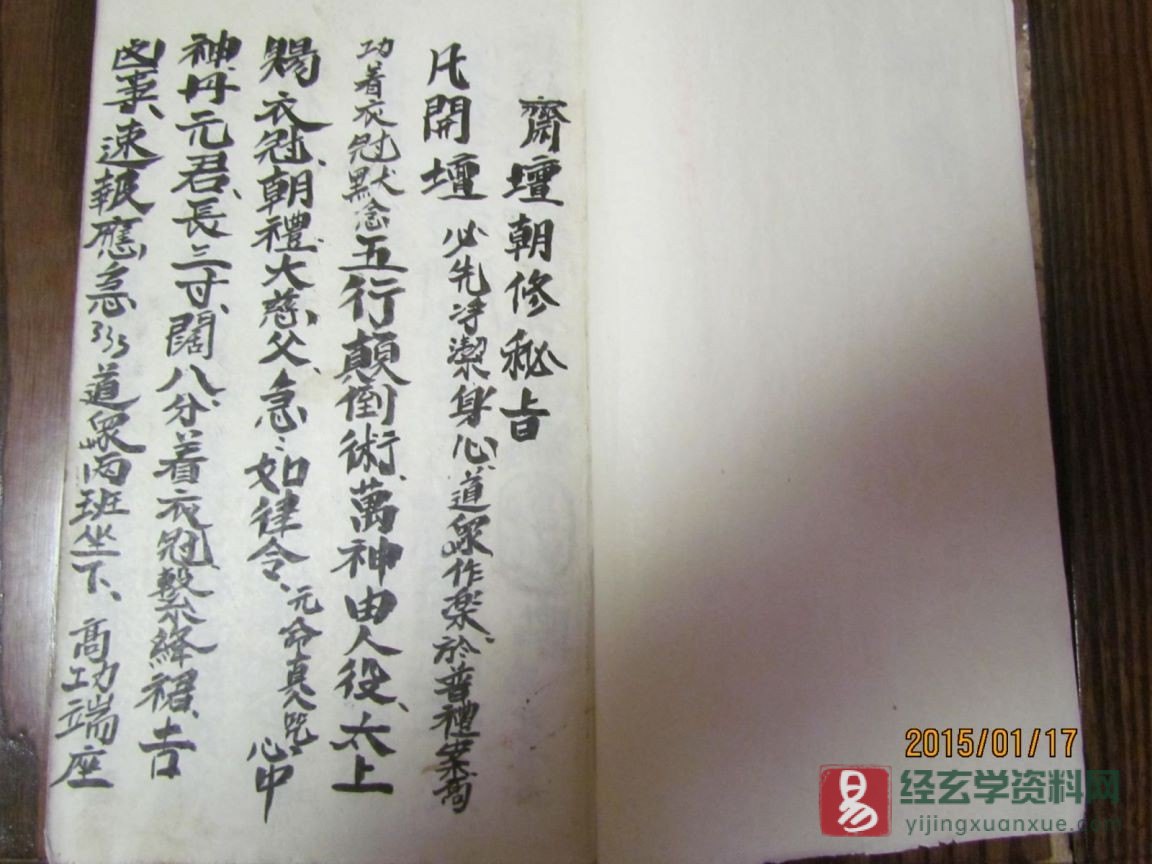 齋壇朝修秘旨
凡開壇 必先净潔身心道眾作楽於普禮案高
功着衣冠默念五行顛倒術萬神由人役太上
賜衣冠朝禮大慈父急〻如律令元命真人咒心中
神丹元君長三寸闊八分着衣冠繫絳裙吉
凶事速報應急〻〻道眾两班坐下高功端座
2015/01/17
易
经玄学资料网
yijingxuanxue.com